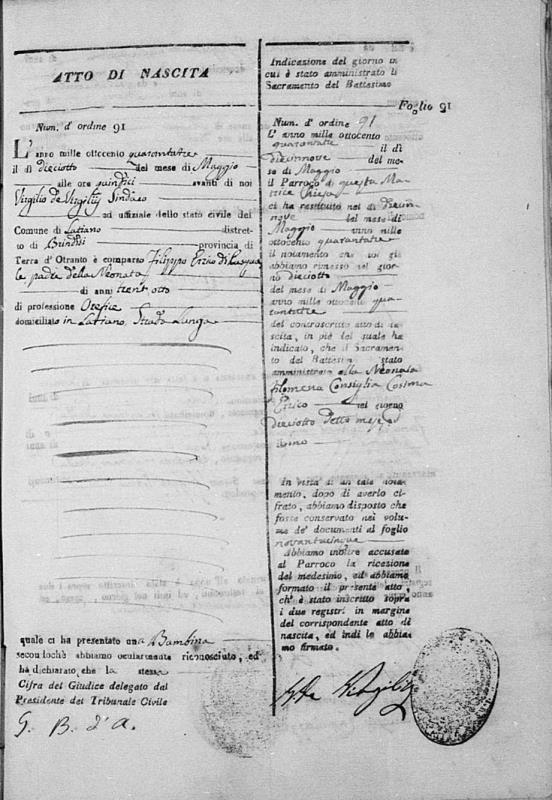 ATTO DI NASCITA
Num. d' ordine 91
L' anno mille ottocento quarantatre
il dì dieciotto del mese di Maggio
alle ore quindici avanti di noi
Virgilio de Virgiliis Sindaco
ad uffiziale dello stato civile del
Comune di Latiano distret-
to di Brindisi provincia di
Terra d' Otranto è comparso Filippo Errico di Pasqua
le padre della Neonata
di anni trent'otto
di professione Orefice
domiciliato in Latiano, Strada Lunga
quale ci ha presentato una Bambina
secondochè abbiamo ocularmente riconosciuto, ed
ha dichiarato, che la stessa
Cifra del Giudice delegato dal
Presidente del Tribunale Civile
G. B. d'A.
Indicazione del giorno in
cui è stato amministrato il
Sacramento del Battesimo
Foglio 91
Num. d' ordine 91
L' anno mille ottocento
quarantatre il dì
diecinnove del me-
se di Maggio
il Parroco di questa Ma-
trice Chiesa
ci ha restituito nel dì diecin
nove del mese di
Maggio anno mille
ottocento quarantatre
il notamento che noi gli
abbiamo rimesso nel gior-
no dieciotto
del mese di Maggio
anno mille ottocento qua-
rantatre
del controscritto atto di na-
scita, in piè del quale ha
indicato, che il Sacramen-
to del Battesimo è stato
amministrato alla Neonata
Filomena Consiglia Cosima
Errico nel giorno
dieciotto detto mese ed
anno
In vista di un tale nota-
mento, dopo di averlo ci-
frato, abbiamo disposto che
fosse conservato nel volu-
me de' documenti al foglio
novantacinque
Abbiamo inoltre accusato
al Parroco la ricezione
del medesimo, ed abbiamo
formato il presente atto,
ch' è stato inscritto sopra
i due registri in margine
del corrispondente atto di
nascita, ed indi lo abbia-
mo firmato.
de Virgiliis